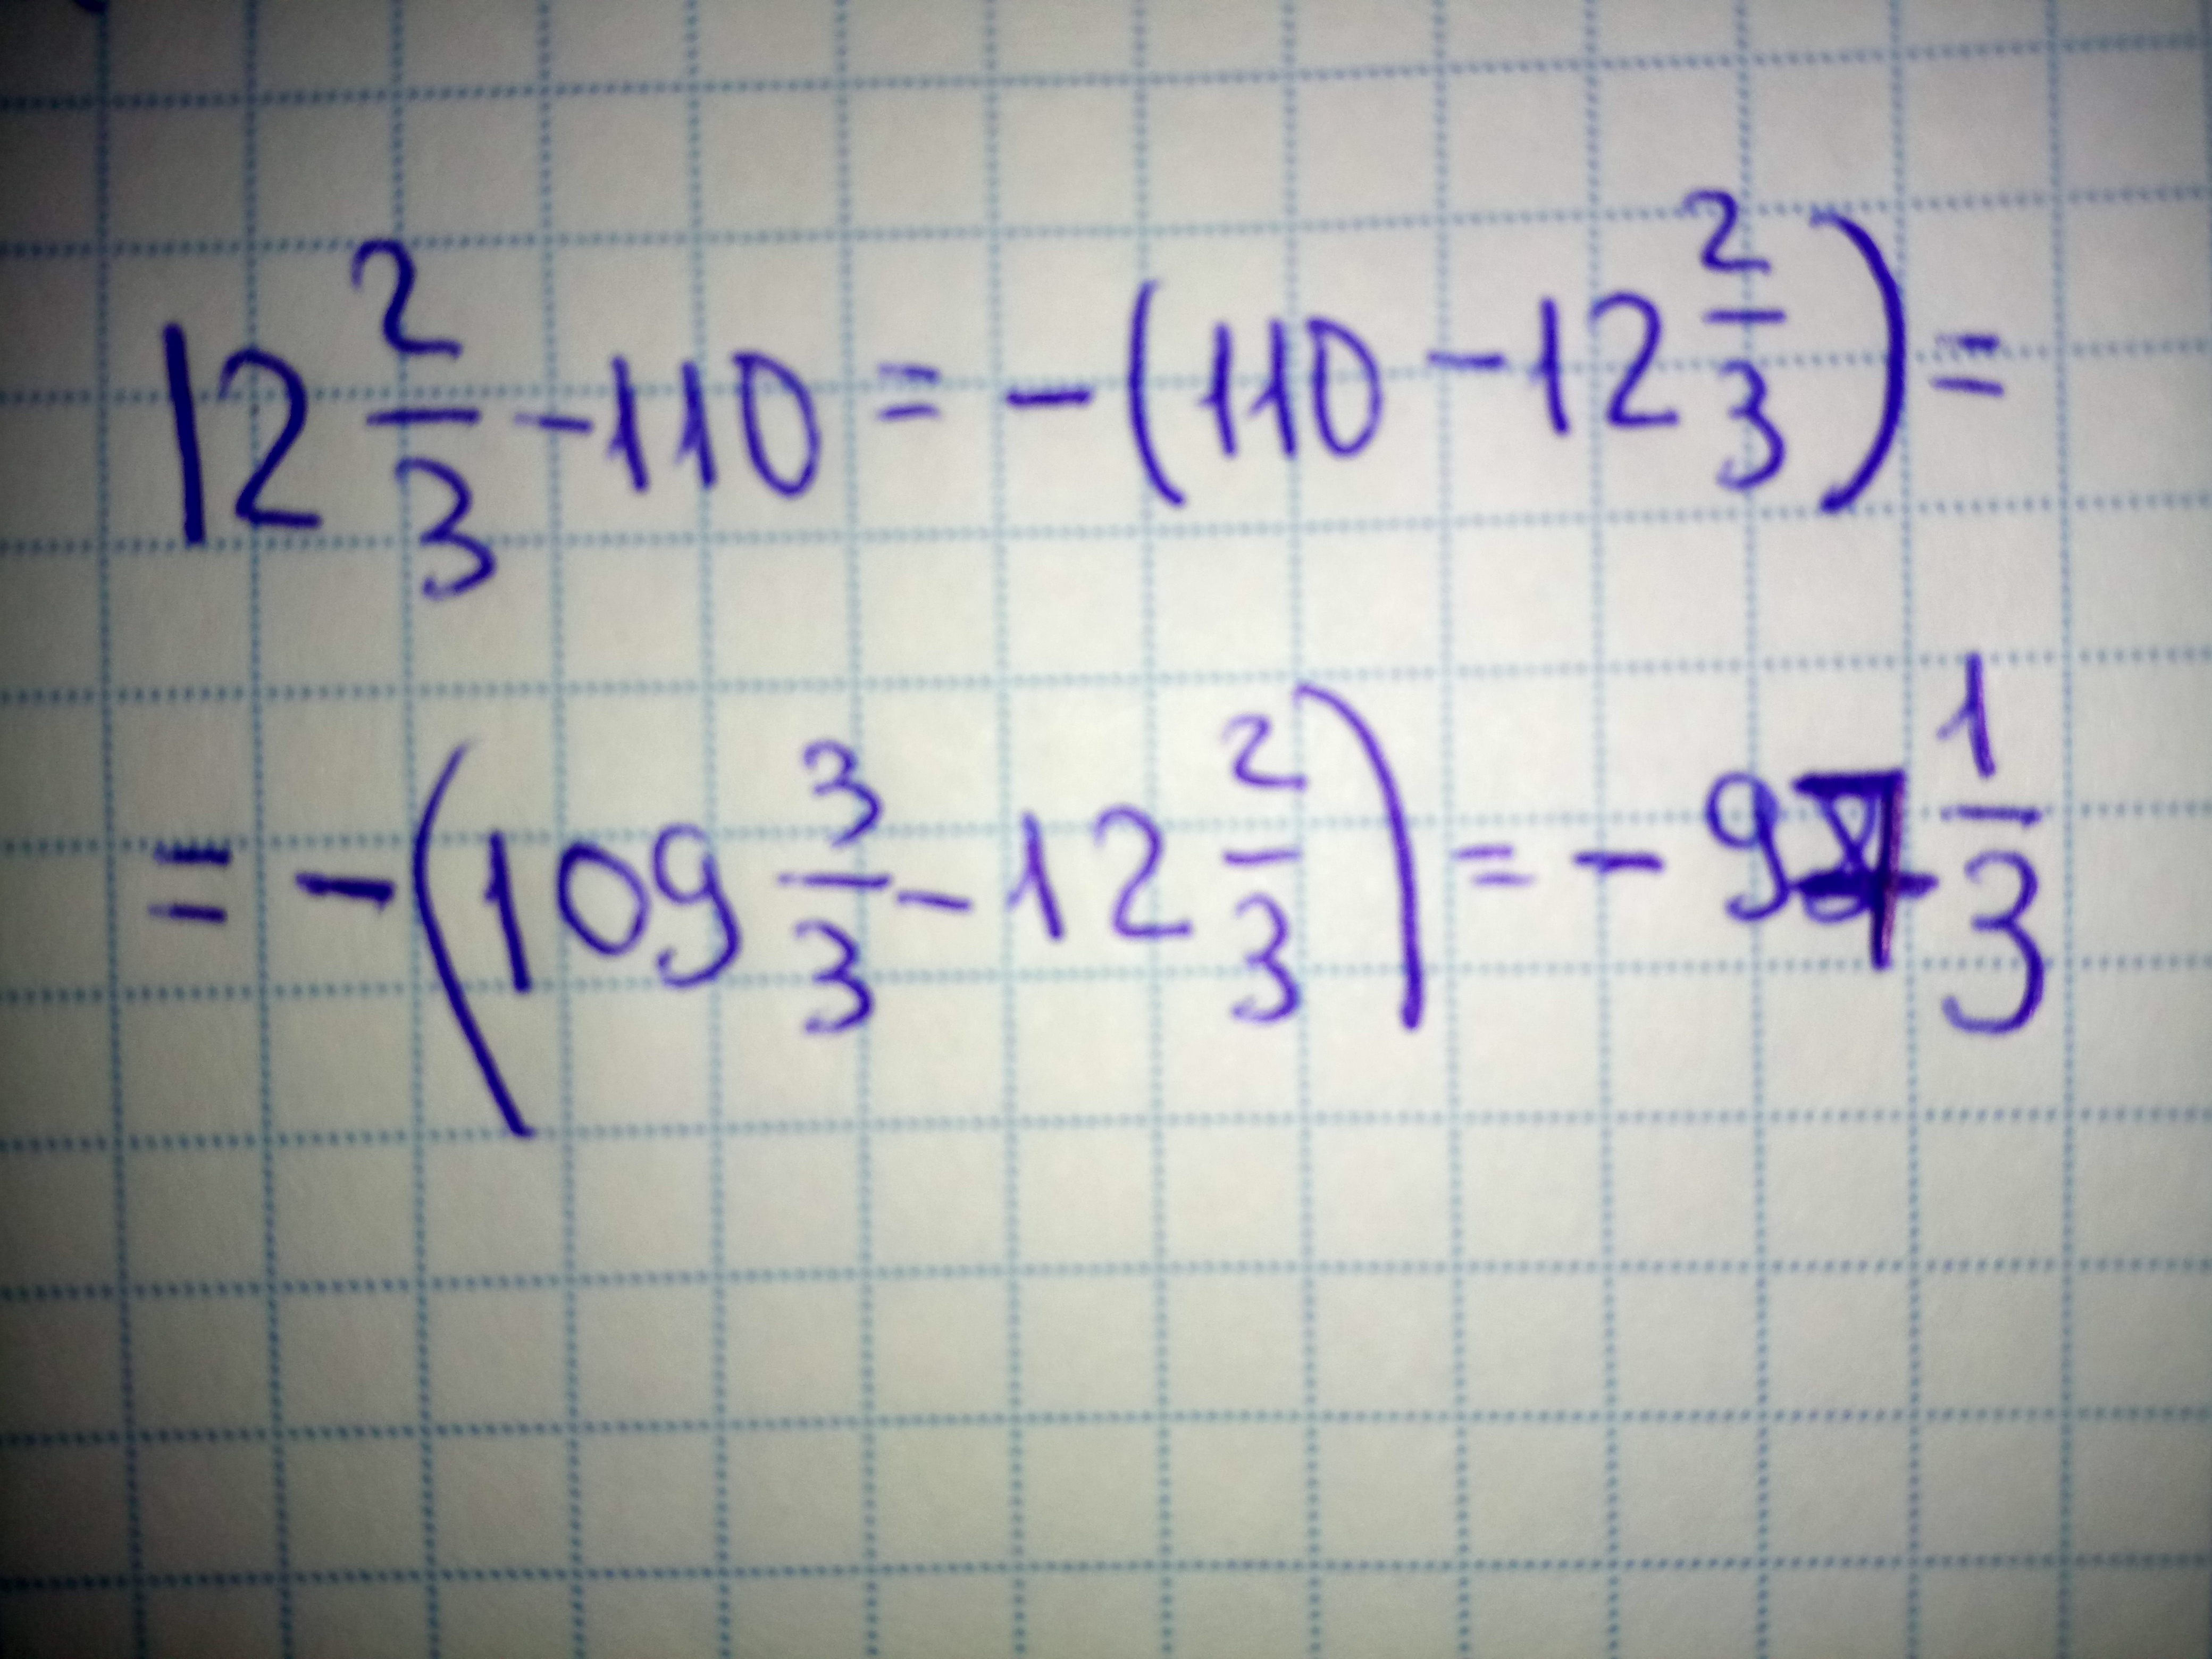 12 2/3 - 110 = - (110 - 12 2/3) =
= - (109 3/3 - 12 2/3) = - 97 1/3